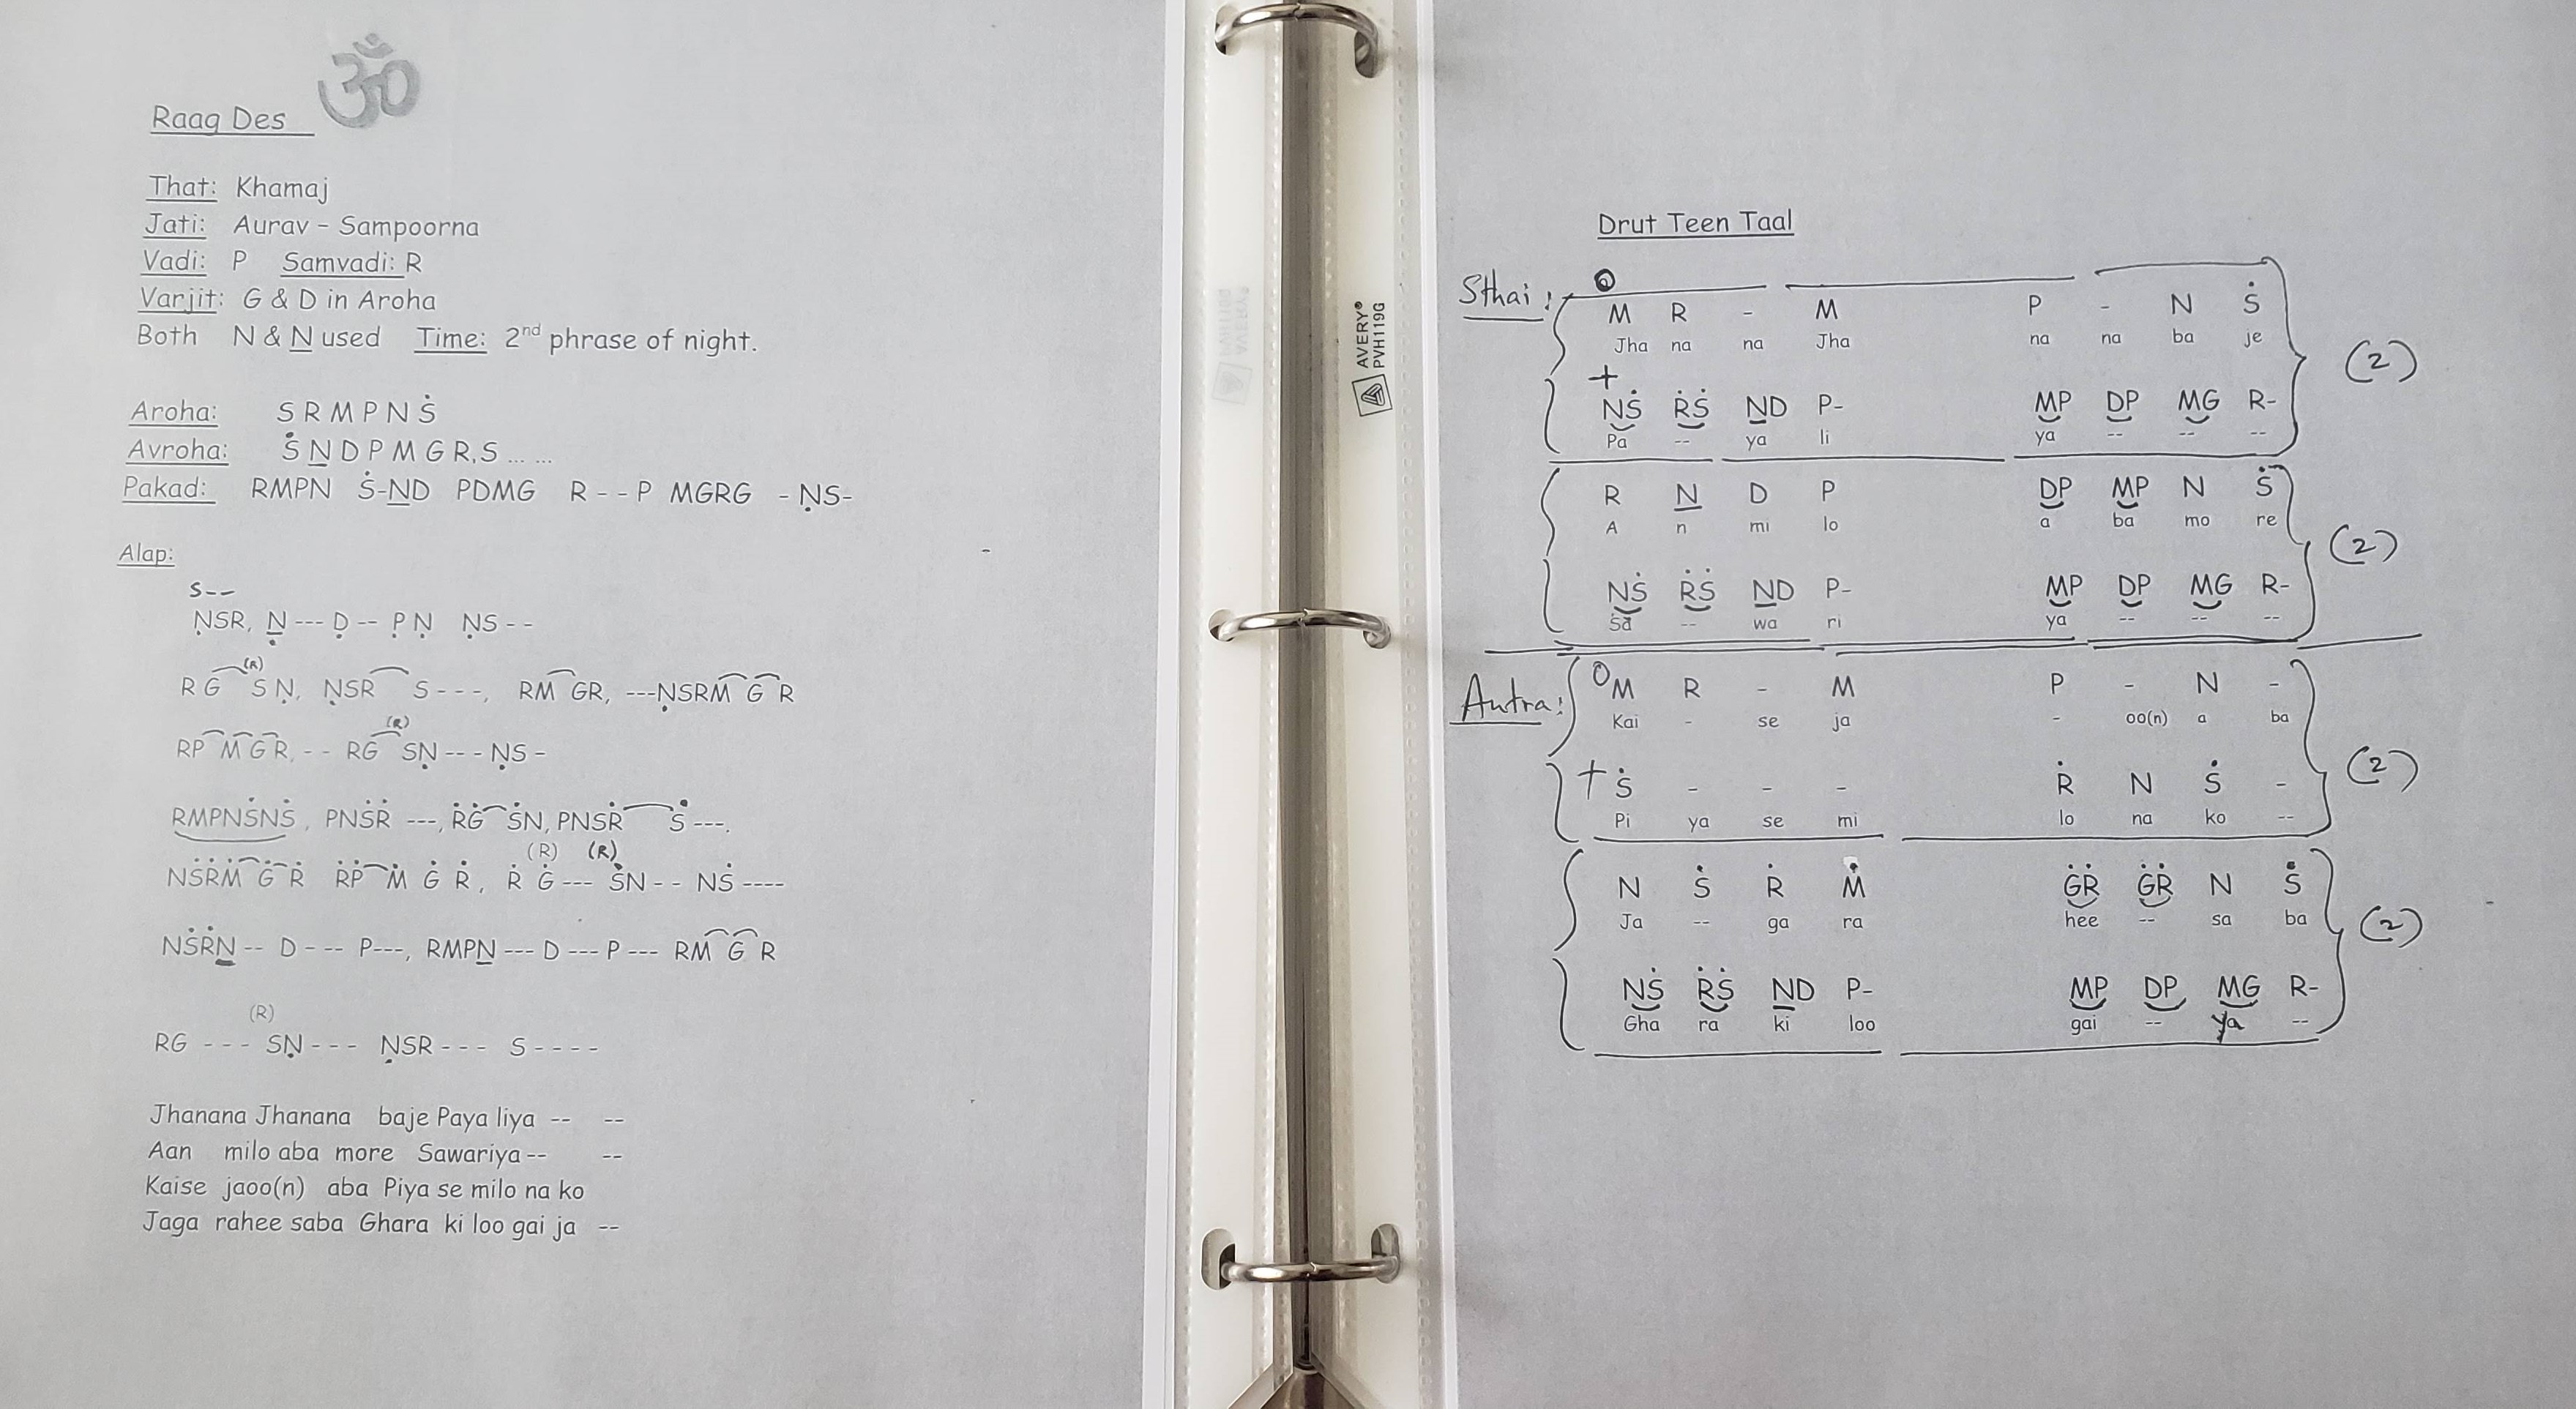 ॐ
Raag Des
That: Khamaj
Jati: Aurav - Sampoorna
Vadi: P Samvadi: R
Varjit: G & D in Aroha
Both N & N̲ used Time: 2nd phrase of night.
Aroha: S R M P N Ṡ
Avroha: Ṡ N̲ D P M G R,S ... ...
Pakad: RMPN Ṡ-N̲D PDMG R - - P MGRG - ṆS-
Alap:
S--
ṆSR, Ṇ̲ --- Ḍ -- P̣ Ṇ ṆS - -
(R)
R G S Ṇ, ṆSR S - - -, RM GR, ---ṆSRM G R
(R)
RP M G R, - - RG SṆ - - - ṆS -
RMPNṠNṠ, PNṠṘ ---, ṘĠ ṠN, PNSṘ Ṡ ---.
(R) (R)
NṠṘṀ Ġ Ṙ ṘṖ Ṁ Ġ Ṙ, Ṙ Ġ --- ṠN - - NṠ ----
NṠṘN̲ -- D - -- P---, RMPN̲ --- D --- P --- RM G R
(R)
RG - - - SṆ - - - ṆSR - - - S - - - -
Jhanana Jhanana baje Paya liya -- --
Aan milo aba more Sawariya -- --
Kaise jaoo(n) aba Piya se milo na ko
Jaga rahee saba Ghara ki loo gai ja --
AVERY®
PVH119G
Drut Teen Taal
Sthai: 0
M R - M P - N Ṡ
Jha na na Jha na na ba je
(2)
+
NṠ ṘṠ N̲D P- MP DP MG R-
Pa -- ya li ya -- -- --
R N̲ D P DP MP N Ṡ
A n mi lo a ba mo re
(2)
NṠ ṘṠ N̲D P- MP DP MG R-
Sa -- wa ri ya -- -- --
Antra: 0 M R - M P - N -
Kai - se ja - oo(n) a ba
(2)
+ Ṡ - - - Ṙ N Ṡ -
Pi ya se mi lo na ko --
N Ṡ Ṙ Ṁ ĠṘ ĠṘ N Ṡ
Ja -- ga ra hee -- sa ba
(2)
NṠ ṘṠ N̲D P- MP DP MG R-
Gha ra ki loo gai -- ya --